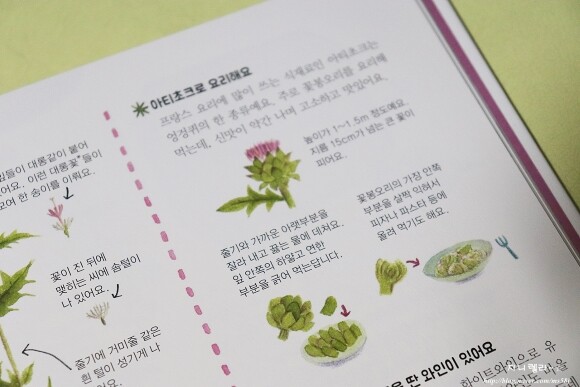 아티초크로 요리해요
프랑스 요리에 많이 쓰는 식재료인 아티초크는
엉겅퀴의 한 종류예요. 주로 꽃봉오리를 요리해
먹는데, 신맛이 약간 나며 고소하고 맛있어요.
높이가 1~1.5m 정도예요.
지름 15cm가 넘는 큰 꽃이
피어요.
잎들이 대롱같이 붙어
있어요. 이런 대롱꽃*들이
모여 한 송이를 이뤄요.
꽃이 진 뒤에
맺히는 씨에 솜털이
나 있어요.
줄기에 거미줄 같은
흰 털이 성기게 나
있어요.
줄기와 가까운 아랫부분을
잘라 내고 끓는 물에 데쳐요.
잎 안쪽의 하얗고 연한
부분을 긁어 먹는답니다.
꽃봉오리의 가장 안쪽
부분을 살짝 익혀서
피자나 파스타 등에
올려 먹기도 해요.
딴 와인이 있어요
화이트와인으로 유